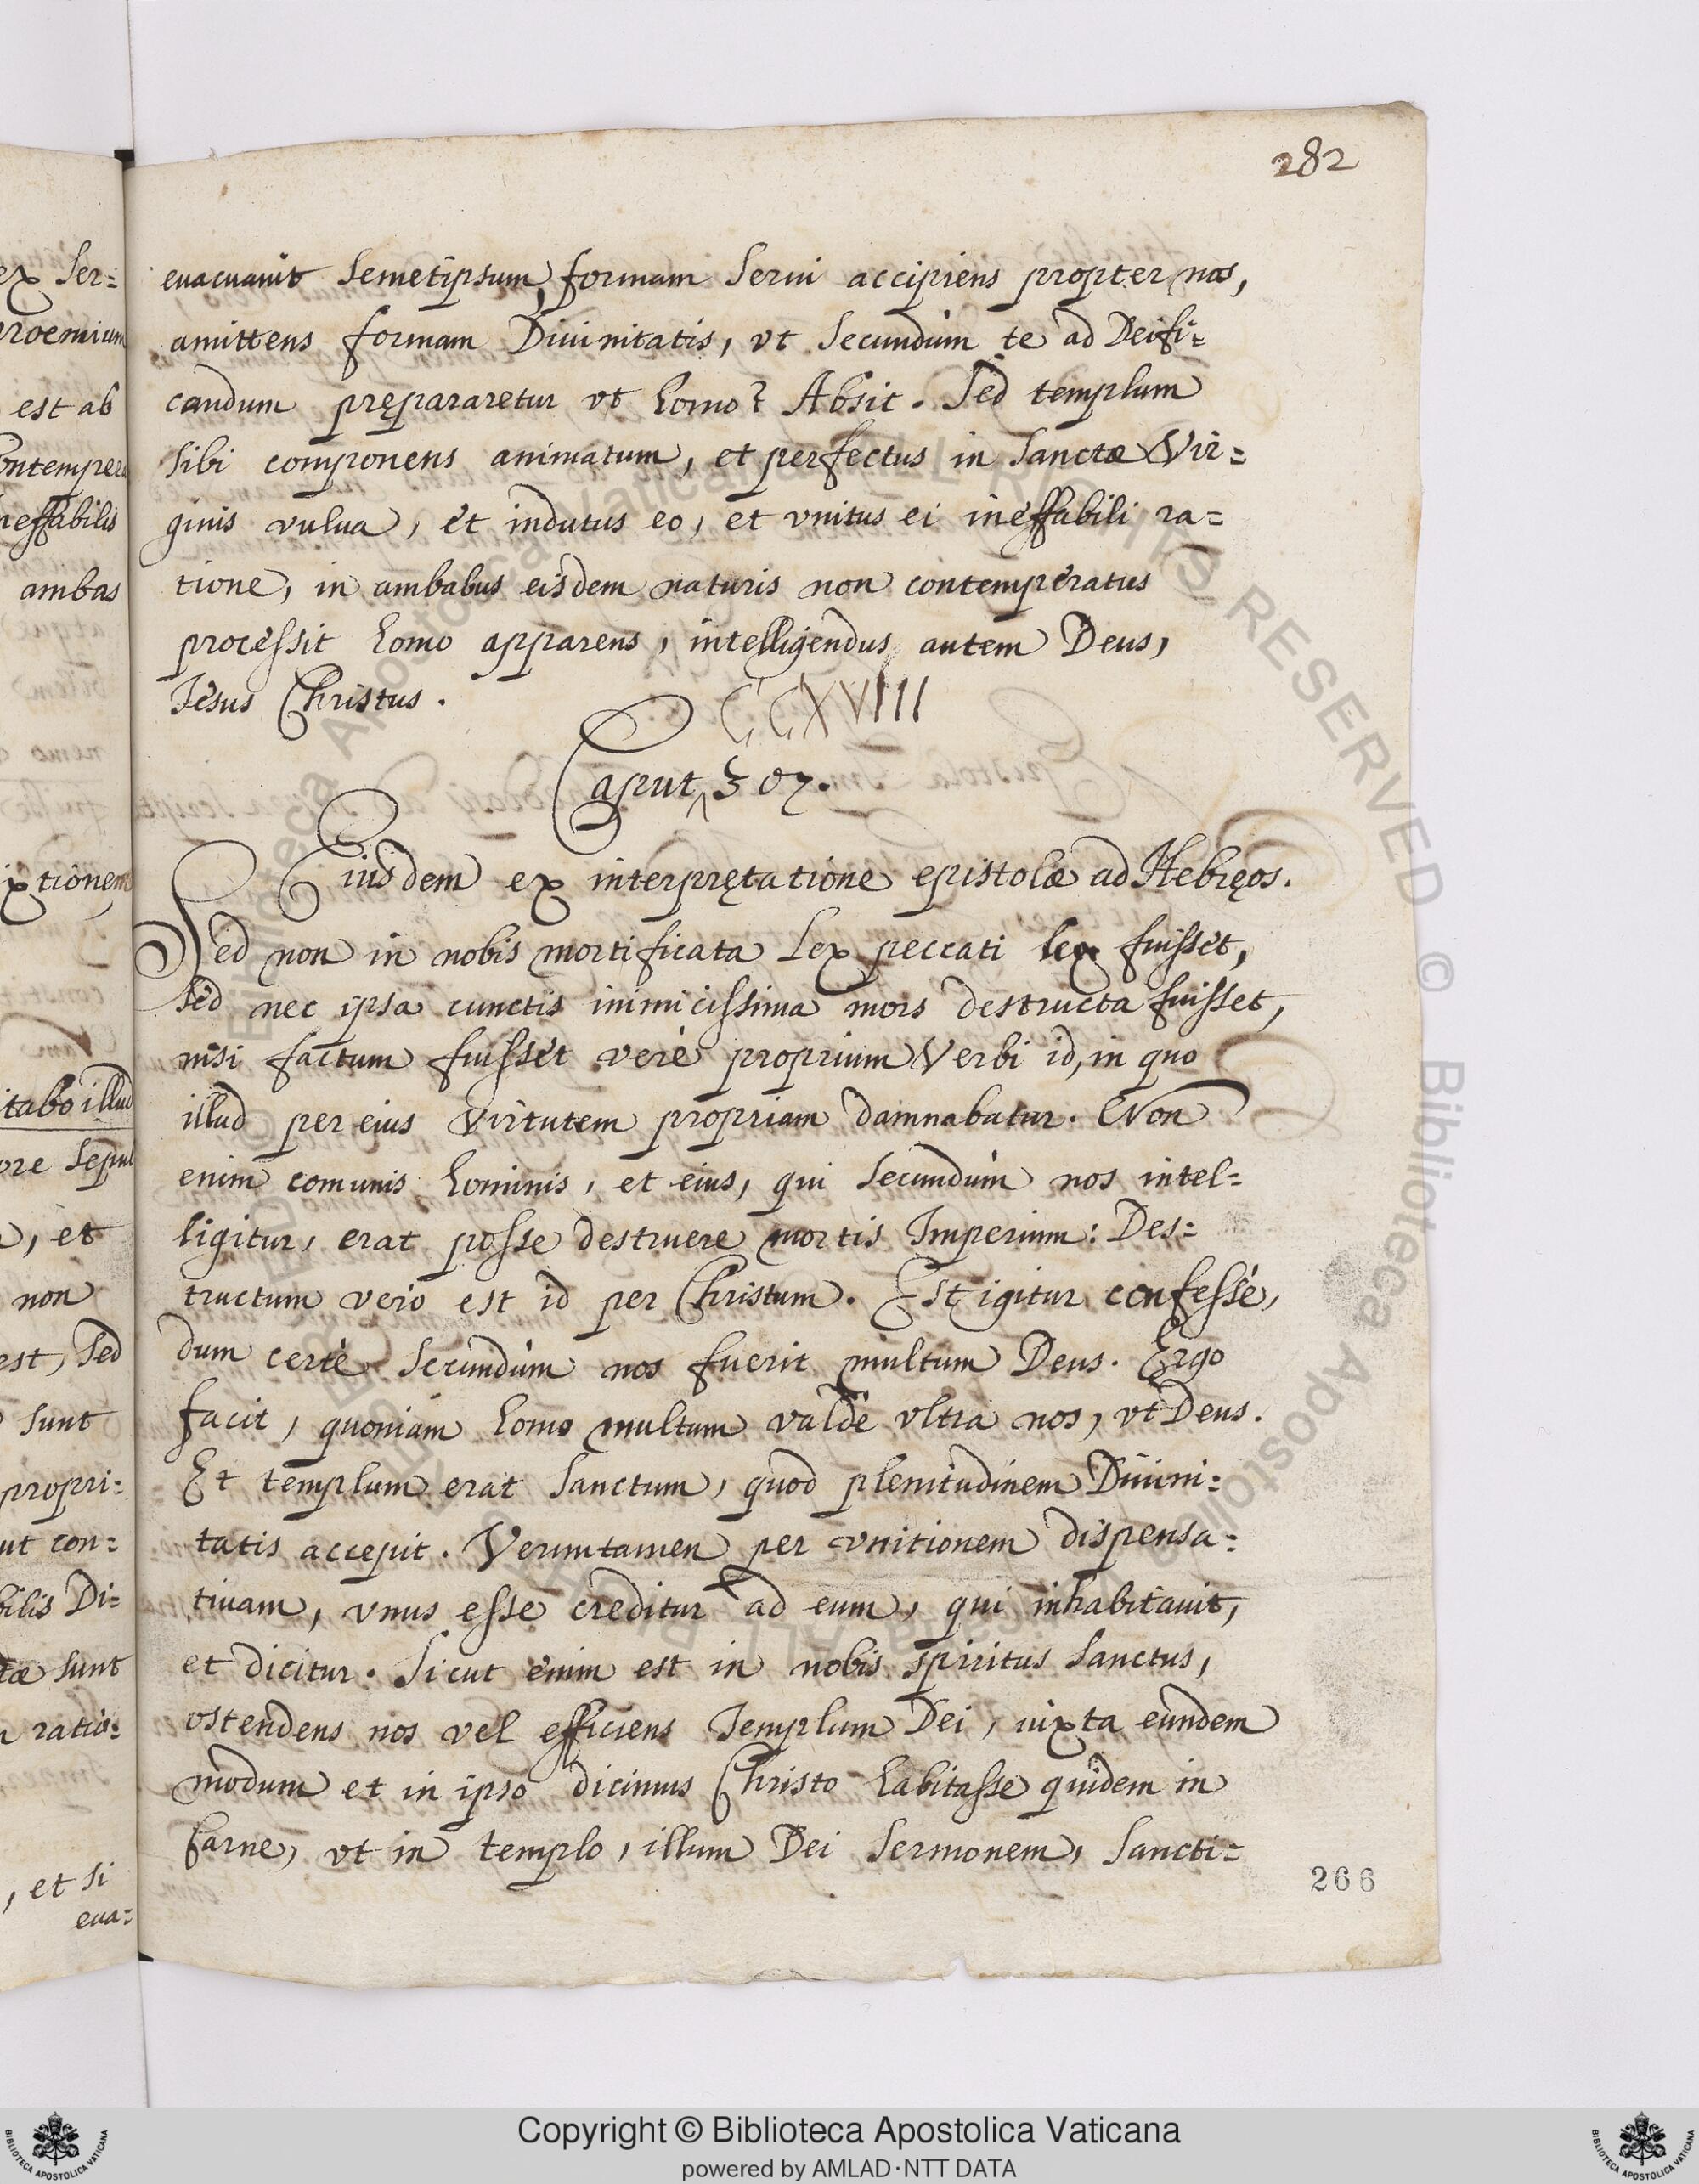 282
euacuauit semetipsum, formam serui accipiens propter nos,
amittens formam Diuinitatis, vt secundùm te ad Deifi=
candum prępararetur vt homo? Absit. Sed templum
sibi componens animatum, et perfectus in sanctæ Vir=
ginis vulua, et indutus eo, et vnitus ei ineffabili ra=
tione, in ambabus eisdem naturis non contemperatus
processit homo apparens, intelligendus autem Deus,
Iesus Christus.
CCXVIIII
Caput 307.
Eiusdem ex interpretatione epistolæ ad Hebręos.
Sed non in nobis mortificata Lex peccati lex fuisset,
sed nec ipsa cunctis inimicissima mors destructa fuisset,
nisi factum fuisset verè proprium Verbi id, in quo
illud per eius virtutem propriam damnabatur. Non
enim comunis hominis, et eius, qui secundùm nos intel=
ligitur, erat posse destruere mortis Imperium: Des=
tructum verò est id per Christum. Est igitur confessè,
dum certè secundùm nos fuerit multum Deus. Ergo
facit, quoniam homo multum valdè vltra nos, vt Deus.
Et templum erat sanctum, quod plenitudinem Diuini=
tatis accepit. Verumtamen per vnitionem dispensa=
tiuam, vnus esse creditur ad eum, qui inhabitauit,
et dicitur. Sicut enim est in nobis spiritus sanctus,
ostendens nos vel efficiens Templum Dei, iuxta eundem
modum et in ipso dicimus Christo habitasse quidem in
carne, vt in templo, illum Dei sermonem, sancti=
266
ex ser=
proemium
est ab
ineffabilis
ambas
itabo illud
ore sepul
, et
non
est, sed
sunt
propri=
ut con=
bilis Di=
tæ sunt
ratio=
, et si
eua=
Copyright © Biblioteca Apostolica Vaticana
powered by AMLAD·NTT DATA
BIBLIOTECA APOSTOLICA VATICANA
BIBLIOTECA APOSTOLICA VATICANA